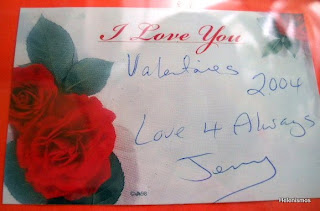 I Love You
Valentines
2004
Love 4 Always
Jenny
Helensmos